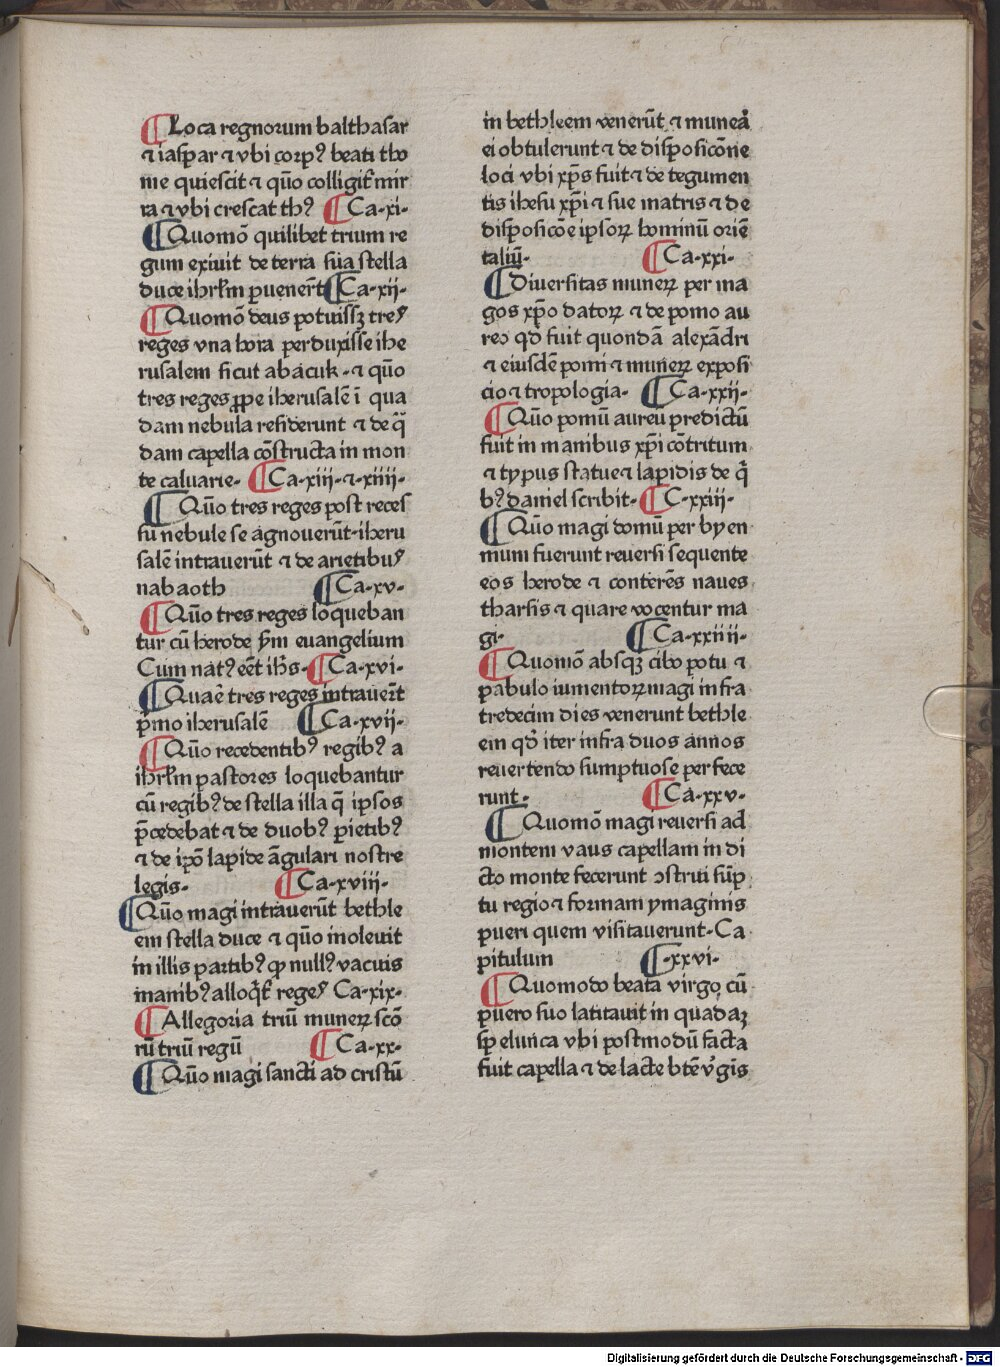 ¶Loca regnorum balthasar
⁊ iaspar ⁊ vbi corpꝰ beati tho
me quiescit ⁊ quō colligit᷑ mir
ra ⁊ vbi crescat thꝰ ¶Ca·xi·
¶Quomō quilibet trium re
gum exiuit de terra sua stella
duce ihrl̄m ꝑuenert̄ ¶Ca·xij·
¶Quomō deus potuissꝫ tres
reges vna hora perduxisse ihe
rusalem sicut abacuk·⁊ quō
tres reges ꝓpe iherusalē ī qua
dam nebula residerunt ⁊ de q̄
dam capella cōstructa in mon
te caluarie· ¶Ca·xiij·⁊·xiiij·
¶Quō tres reges post reces
su nebule se agnouerūt·iheru
salē intrauerūt ⁊ de arietibus
nabaoth ¶Ca·xv·
¶Quō tres reges loqueban
tur cū herode ẜm euangelium
Cum natꝰ eēt ihs̄· ¶Ca·xvi·
¶Quaē tres reges intrauer̄t
p̄mo iherusalē ¶Ca·xvij·
¶Quō recedentibꝰ regibꝰ a
ihrl̄m pastores loquebantur
cū regibꝰ de stella illa q̄ ipsos
p̄cedebat ⁊ de duobꝰ ꝑietibꝰ
⁊ de ip̄o lapide āgulari nostre
legis· ¶Ca·xviij·
¶Quō magi intrauerūt bethle
em stella duce ⁊ quō inoleuit
in illis partibꝰ ꝙ nullꝰ vacuis
manibꝰ alloq̄t᷑ reges Ca·xix·
¶Allegoria triū munerꝝ scō
rū triū regū ¶Ca·xx·
¶Quō magi sancti ad cristū
in bethleem venerūt ⁊ munea᷑
ei obtulerunt ⁊ de disposicōne
loci vbi xp̄s fuit ⁊ de tegumen
tis ihesu xp̄i ⁊ sue matris ⁊ de
disposicōe ipsorꝝ hominū oriē
taliū· ¶Ca·xxi·
¶Diuersitas munerꝝ per ma
gos xp̄o datorꝝ ⁊ de pomo au
reo qd̄ fuit quondā alexādri
⁊ eiusdē pomi ⁊ munerꝝ exposi
cio ⁊ tropologia· ¶Ca·xxij·
¶Quō pomū aureū predictū
fuit in manibus xp̄i cōtritum
⁊ typus statue ⁊ lapidis de q̄
bꝰ daniel scribit· ¶C·xxiij·
¶Quō magi domū per hyen
mum fuerunt reuersi sequente
eos herode ⁊ conterēs naues
tharsis ⁊ quare vocentur ma
gi· ¶Ca·xxiiij·
¶Quomō absqꝫ cibo potu ⁊
pabulo iumentorꝝ magi infra
tredecim dies venerunt bethle
em qd̄ iter infra duos annos
reuertendo sumptuose perfece
runt· ¶Ca·xxv·
¶Quomō magi reuersi ad
montem vaus capellam in di
cto monte fecerunt ꝯstrui sūp
tu regio ⁊ formam ymaginis
pueri quem visitauerunt·Ca
pitulum ¶·xxvi·
¶Quomodo beata virgo cū
puero suo latitauit in quadaꝫ
spelunca vbi postmodū facta
fuit capella ⁊ de lacte btē v᷑gis
Digitalisierung gefördert durch die Deutsche Forschungsgemeinschaft - DFG